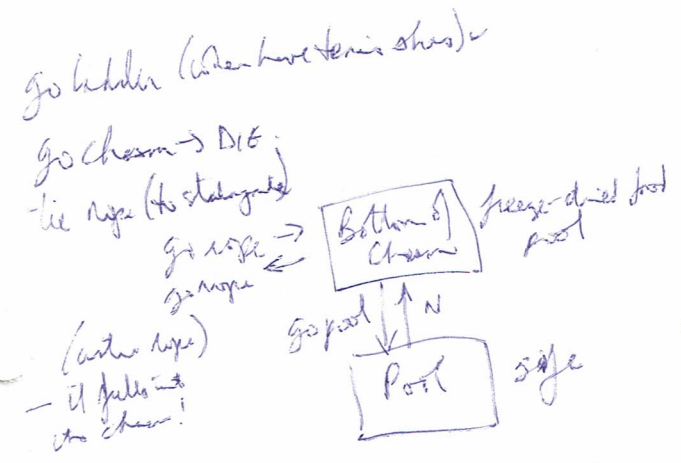 go ladder (when have tennis shoes)
go chasm → DIE.
tie rope (to stalagmite)
go rope →
go rope ←
Bottom of
Chasm
freeze-dried food
pool
go pool
N
(untie rope)
- it falls into
the chasm!
Pool
safe